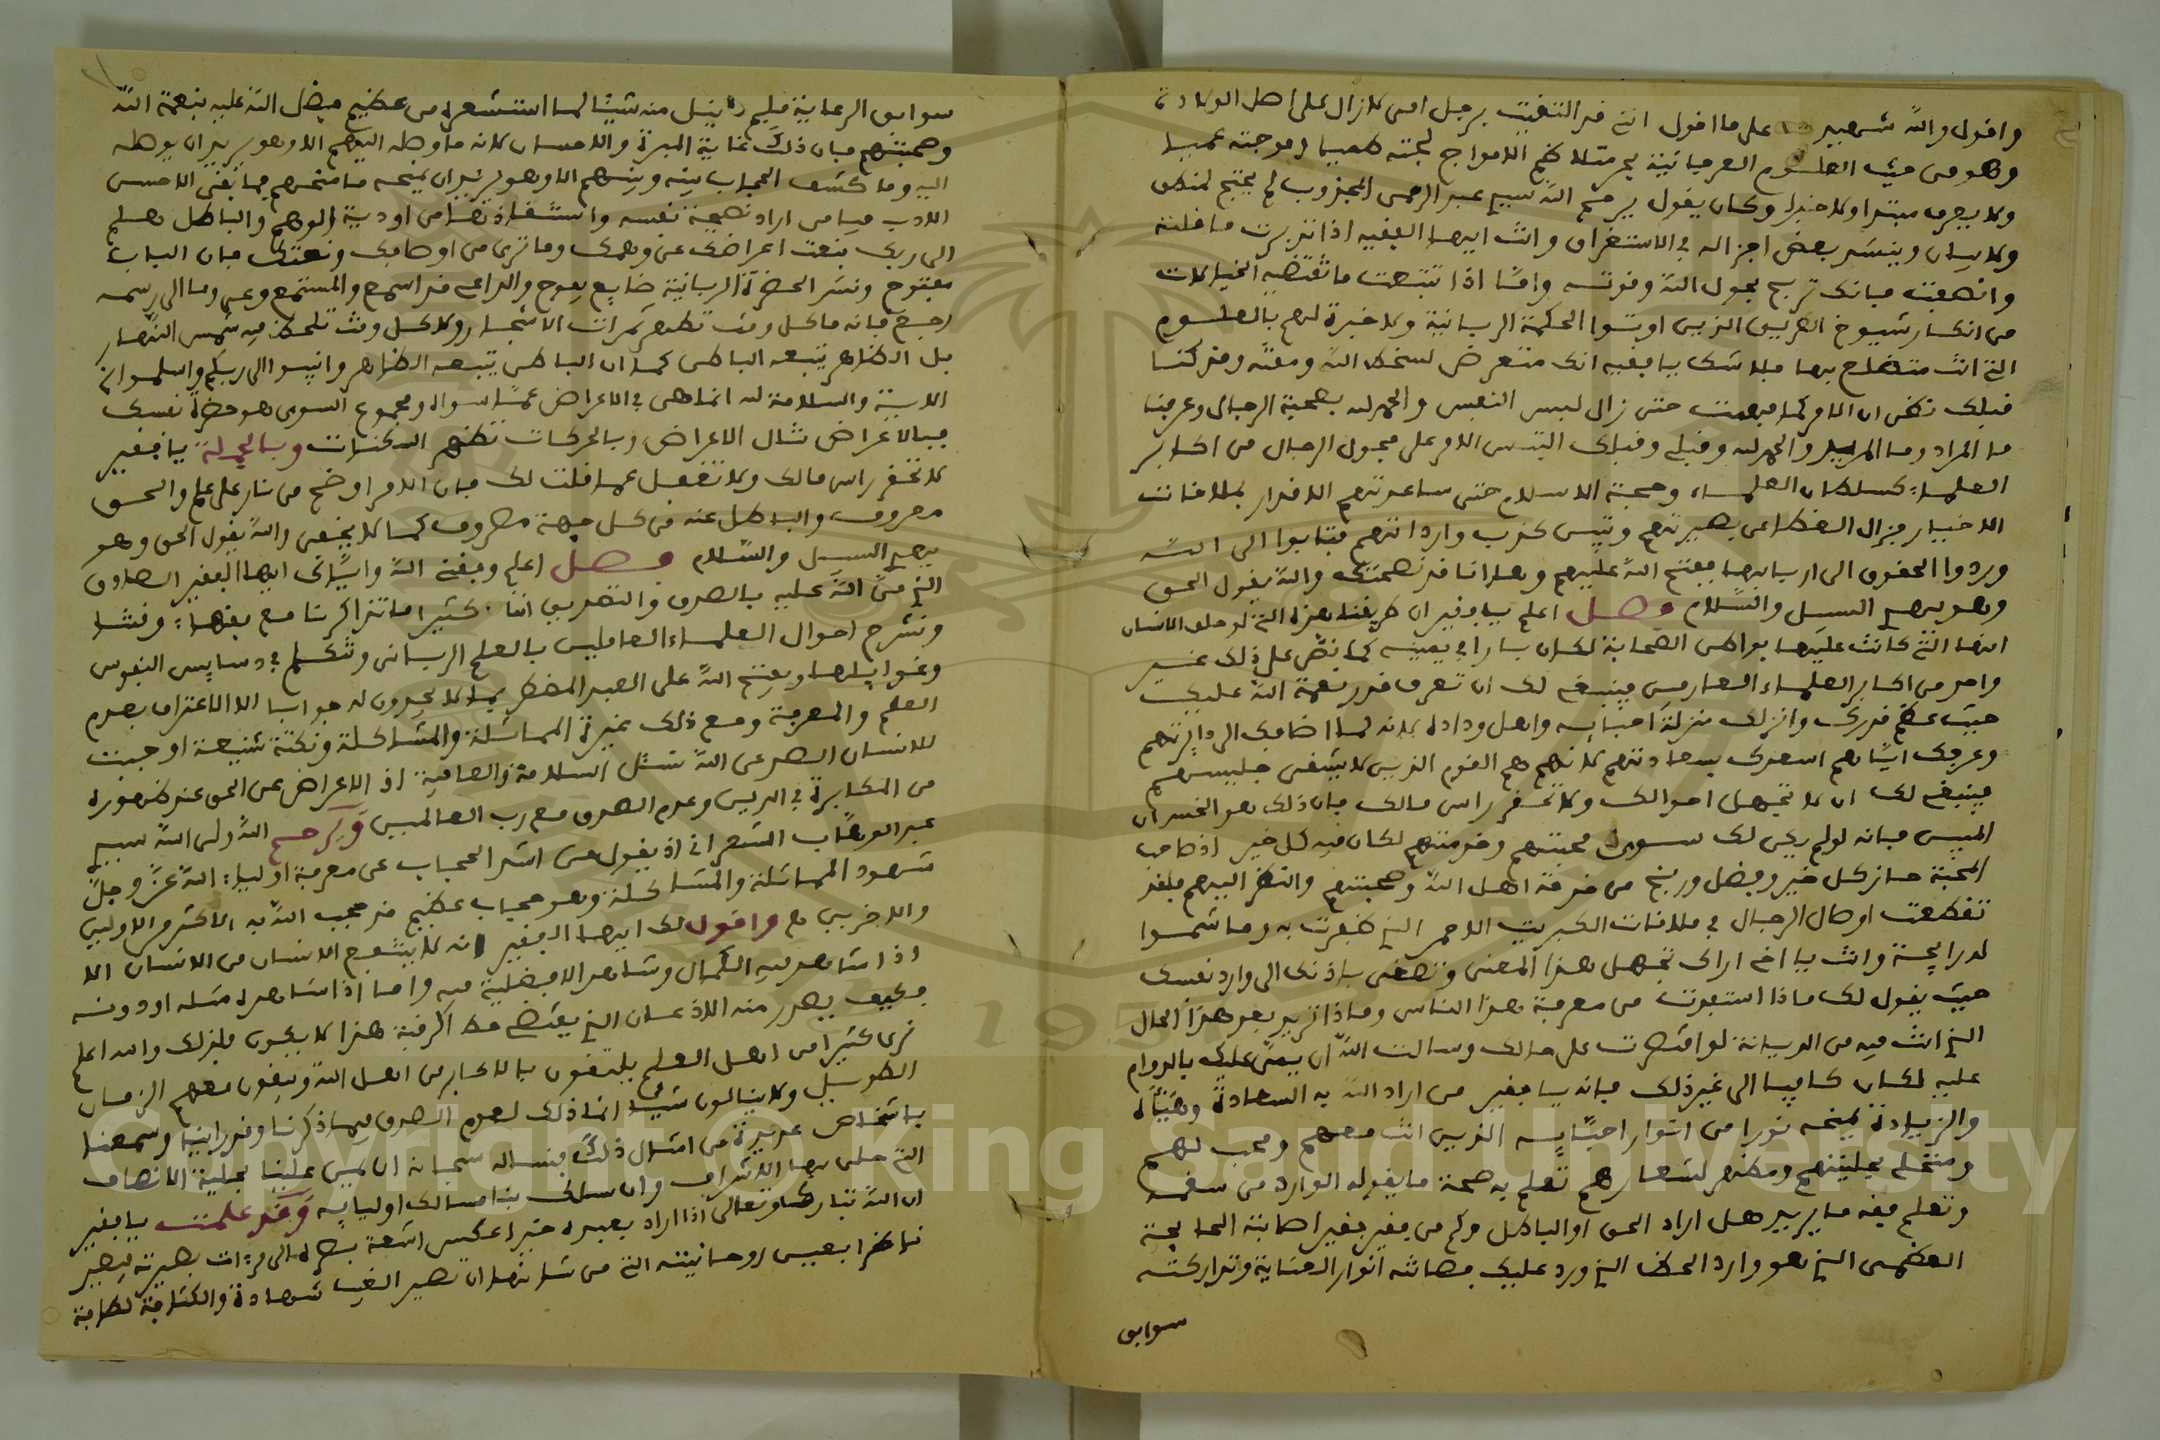 وافول والله شهيد على ما افول انه فد التفيت برجل امى لازال على اصل الولادة
وهو من حيث العلوم العرفانية بحر متلاطم الامواج لجته
ولا يعرف مبتدا ولا خبرا وكان يفول يرحم الله سيدى عبد الرحمن المجذوب
ولا بيان وينشد بعض ازجاله فى الاستغراق وانت ايها الفقيه اذا تدبرت ما فلته
وانصفت فانك تربح بحول الله وفوته واما اذا تتبعت ما تفتضيه الخيالات
من انكار شيوخ الدين الذين اوتوا الحكمة الربانية ولا خبرة لهم بالعلوم
التى انت متضلع بها فلا شك يا فقيه انك متعرض لسخط الله ومفته وفد كنا
فبلك نظن ان الامر كما فهمت حتى زال لبس النفس والحمد لله بصحبة الرجال وعرفنا
ما المراد وما المريد والحمد لله وفبلى وفبلك التبس الامر على فحول الرجال من اكابر
العلماء كسلطان العلماء وحجة الاسلام حتى ساعدتهم الافدار بملافات
الاخيار فزال الغطا عن بصيرتهم وتبين كذب وارداتهم فتابوا الى الله
وردوا الحفوق الى اربابها ففتح الله عليهم وها انا فد نصحتك والله يفول الحق
وهو يهدى السبيل والسلام فصل اعلم يا ففير ان طريفنا هذه التى لو حلف الانسان
انها التى كانت عليها بواطن الصحابة لكان بارا فى يمينه كما نص على ذلك غير
واحد من اكابر العلماء العارفين فينبغى لك ان تعرف فدر نعمة الله عليك
حيث عظم فدرك وانزلك منزلة احبابه واهل وداده لانه لما اضافك الى دائرتهم
وعرفك اياهم اسعدك بسعادتهم لانهم هم الفوم الذين لا يشفى جليسهم
فينبغى لك ان لا تجهل احوالك ولا تحفر راس مالك فان ذلك هو الخسران
المبين فانه لو لم يكن لك سوى محبتهم وخدمتهم لكان فيه كل خير اذ صاحب
المحبة حاز كل خير وفضل وربح من خدمة اهل الله وصحبتهم والنظر اليهم فلفد
تفطعت اوصال الرجال فى ملافات الكبريت الاحمر الذى ظفرت به وما شموا
له رايحة وانت يا اخى اراك تجهل هذا المعنى وتصغى باذنك الى وارد نفسك
حيث يفول لك ماذا استفدت من معرفة هذا الناس وماذا تريد بعد هذا الحال
الذى انت فيه من الديانة لو افتصرت على حالك وسالت الله ان يمن عليك بالدوام
عليه لكان كافيا الى غير ذلك فانه يا ففير من اراد الله به السعادة وهيأه
والزيادة يمنحه نورا من انوار احبايه الذين انت معهم ومحب لهم
ومتحلى بحليتهم ومظهر لشعارهم تعلم به صحة ما يفوله الوارد من سفمه
وتعلم فيه ما يريد هل اراد الحق او الباطل وكم من ففير ففير اصابته الجايحة
العظمى الذى هو وارد الحظ الذى ورد عليك فصانته انوار العناية وتداركته
سوابق
سوابق الرعاية فلم ينل منه شيئا لما استشعره من عظيم فضل الله عليه بنعمة الله
وصحبتهم فان ذلك غاية المبرة والاحسان لانه ما وصله اليهم الا وهو يريد ان يوصله
اليه وما كشف الحجاب بينه وبينهم الا وهو يريد ان يمنحه ما منحهم فما بفى الا حسن
الادب فيا من اراد نصيحة نفسه واستنفاذها من اودية الوهم والباطل هلم
الى ربك بنعت اعراضك عن وهمك وما ترى من اوصافك ونعتك فان الباب
مفتوح ونشر الحضرة الربانية ضايع يفوح والداعى فد اسمع والمستمع وعى وما الى رسمه
رجع فانه ما كل وفت تظهر ثمرات الاشجار ولا كل وفت تلحظ فيه شمس النهار
بل الظاهر يتبعه الباطن كما ان الباطن يتبعه الظاهر وانيبوا الى ربكم واسلموا له
الاية والسلامة له انما هى فى الاعراض عما سواه ومجموع السوى هو حضرة نفسك
فبالاعراض تنال الاعراض وبالحركات تظهر السكنات وبالجملة يا ففير
لا تحفر راس مالك ولا تغفل عما فلت لك فان الامر اوضح من نار على علم والحق
معروف والباطل عنه فى كل جهة مصروف كما لا يخفى والله يفول الحق وهو
يهدى السبيل والسلام فصل اعلم وففنى الله واياك ايها الففير الصادق
الذى من الله عليه بالصدق والتصديق اننا كثيرا ما تذاكرنا مع ففهاء وفتنا
ونشرح احوال العلماء العاملين بالعلم الربانى ونتكلم فى دسايس النفوس
وغوايلها ويفتح الله على العبد المضطر بما لا يجدون له جوابا الا الاعتراف بعدم
العلم والمعرفة ومع ذلك غيرة المماثلة والمشاكلة ونكتة شنيعة اوجبت
للانسان الصد عن الله نسئل السلامة والعافية اذ الاعراض عن الحق عند ظهوره
من المكابرة فى الدين وعدم الصدق مع رب العالمين ويرحم الله ولى الله سيدى
عبد الوهاب الشعرانى اذ يفول من اشد الحجاب عن معرفة اولياء الله عز وجل
شهود المماثلة والمشاكلة وهو حجاب عظيم فد حجب الله به الاكثر من الاولين
والاخرين ه وافول لك ايها الففير انه لا ينتفع الانسان من الانسان الا
اذا شاهد فيه الكمال وشاهد الافضلية فيه واما اذا شاهده مثله او دونه
فكيف يصدر منه الاذعان الذى يفتضى حط الرفبة هذا لا يكون فلذلك والله اعلم
ترى كثيرا من اهل العلم يلتفون بالاكابر من اهل الله ويبفون معهم الزمان
الطويل ولا ينالون شيئا انما ذلك لعدم الصدق فيما ذكرنا وفد راينا وسمعنا
باشخاص عديدة من امثال ذلك فنساله سبحانه ان يمن علينا بحلية الانصاف
التى حلى بها الاشراف وان يسلك بنا مسالك اوليايه وفد علمت يا ففير
ان الله تبارك وتعالى اذا اراد بعبده خيرا عكس اشعة بصره الى مرءات بصيرته فيصير
ناظرا بعين روحانيته التى من شانها ان تصير الغيب شهادة والكثافة لطافة
Copyright © King Saud University
1957